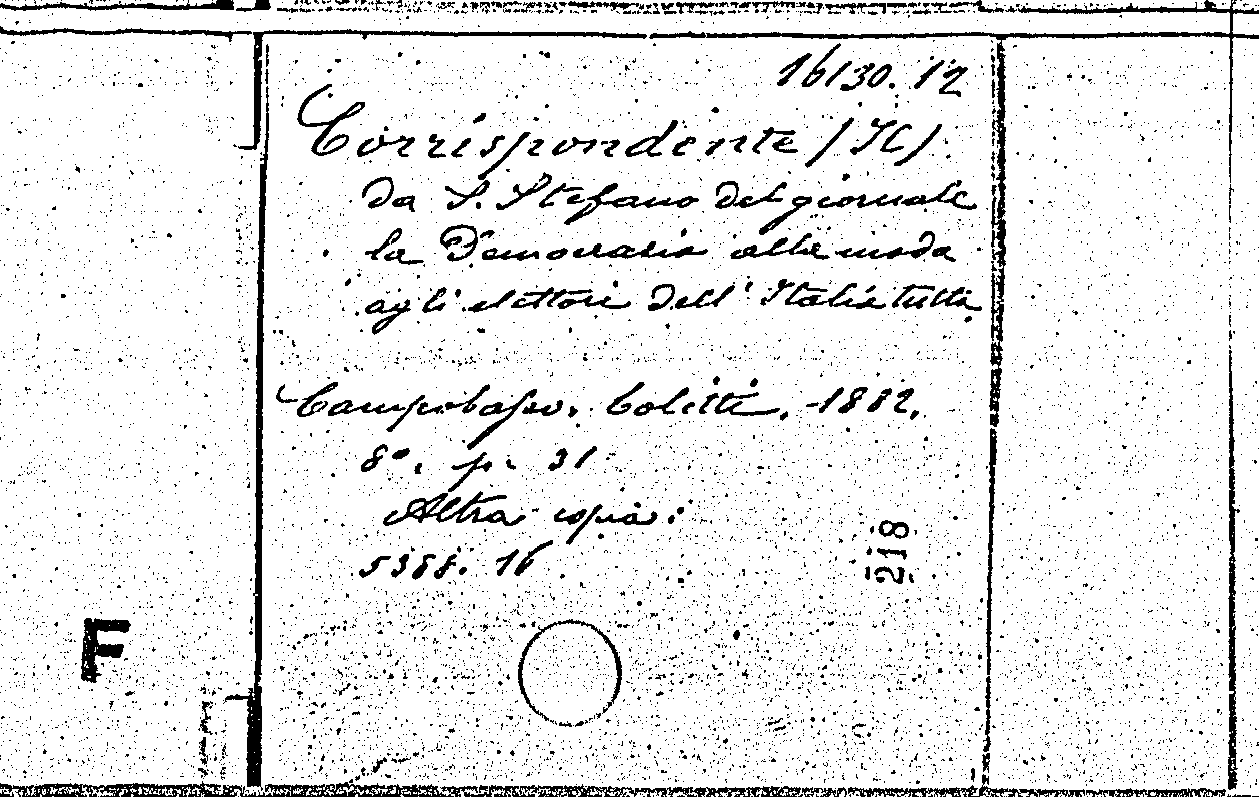 16130. 12
Corrispondente (Il)
da S. Stefano del giornale
la Democrazia alla moda
agli elettori dell' Italia tutta
Campobasso. Colitti. 1882.
8°. p. 31
Altra copia:
5388. 16
218
F